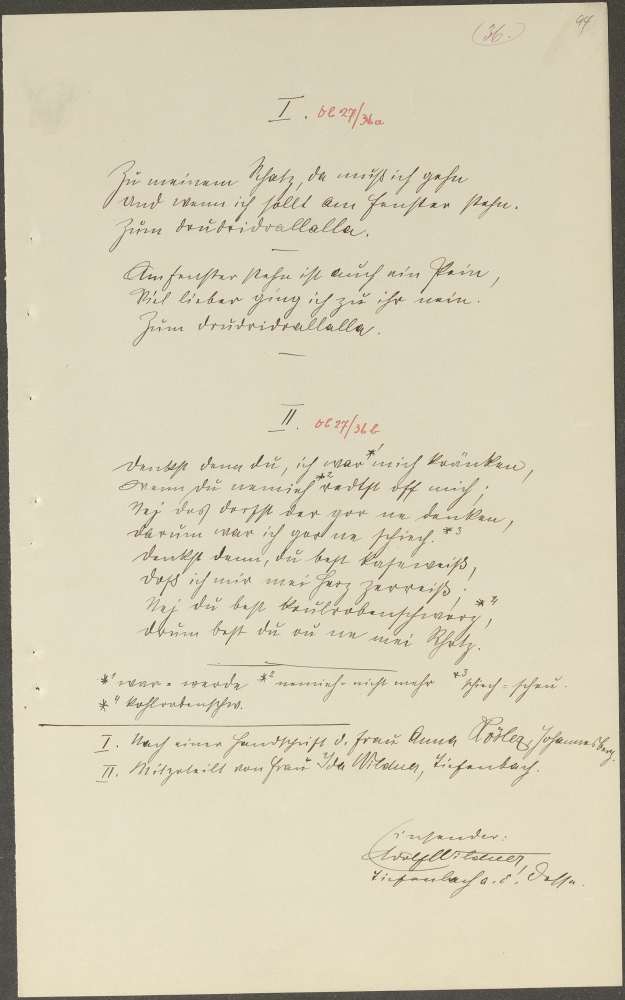 (36.) 94
I. Ol 27/36a
Zu meinem Schatz, da muß ich gehn
Und wenn ich sollt am Fenster stehn.
Zum drudridrallalla.
Am Fenster stehn ist auch ein Pein,
Viel lieber ging ich zu ihr nein.
Zum drudridrallalla.
II. Ol 27/36b
Denkst denn du, ich war *1 mich kränken,
Wenn du nemieh *2 redtst off mich;
Nej das darfst der gor ne denken,
Darum war ich gor ne schiech. *3
Denkst denn, du best kaseweiß,
Doß ich mir mei Herz zerreiß;
Nej du best koulrobenschworz, *4
Drum best du ou ne mei Schotz.
*1 war = werde *2 nemieh = nicht mehr *3 schiech = scheu.
*4 kohlrabenschw.
I. Nach einer Handschrift d. Frau Anna Rösler, Johannesberg.
II. Mitgeteilt von Frau Ida Wildner, Tiefenbach.
Einsender:
Adolf Wildner,
Tiefenbach a. d. Desse.